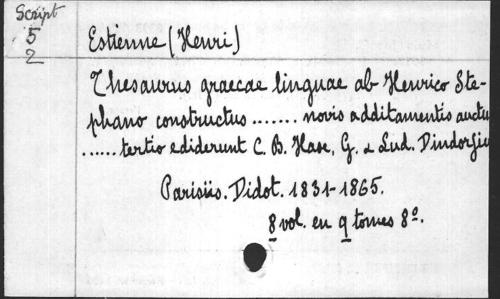 Script
5
2
Estienne (Henri)
Thesaurus graecae linguae ab Henrico Ste-
phano constructus ....... novis additamentis auctu
...... tertio ediderunt C. B. Hase, G. & Lud. Dindorfiu
Parisiis. Didot. 1831-1865.
8 vol. en 9 tomes 8º.